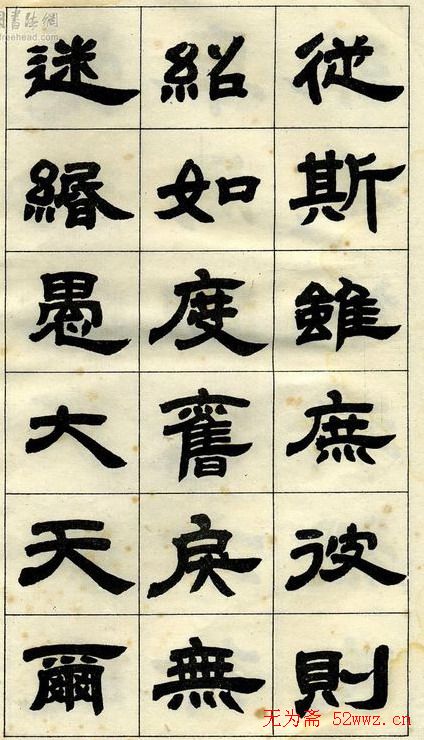 從斯雖庶彼則
紹如度戾無
迷緡愚大天爾
书法網
freehead.com
无为斋 52wwz.cn